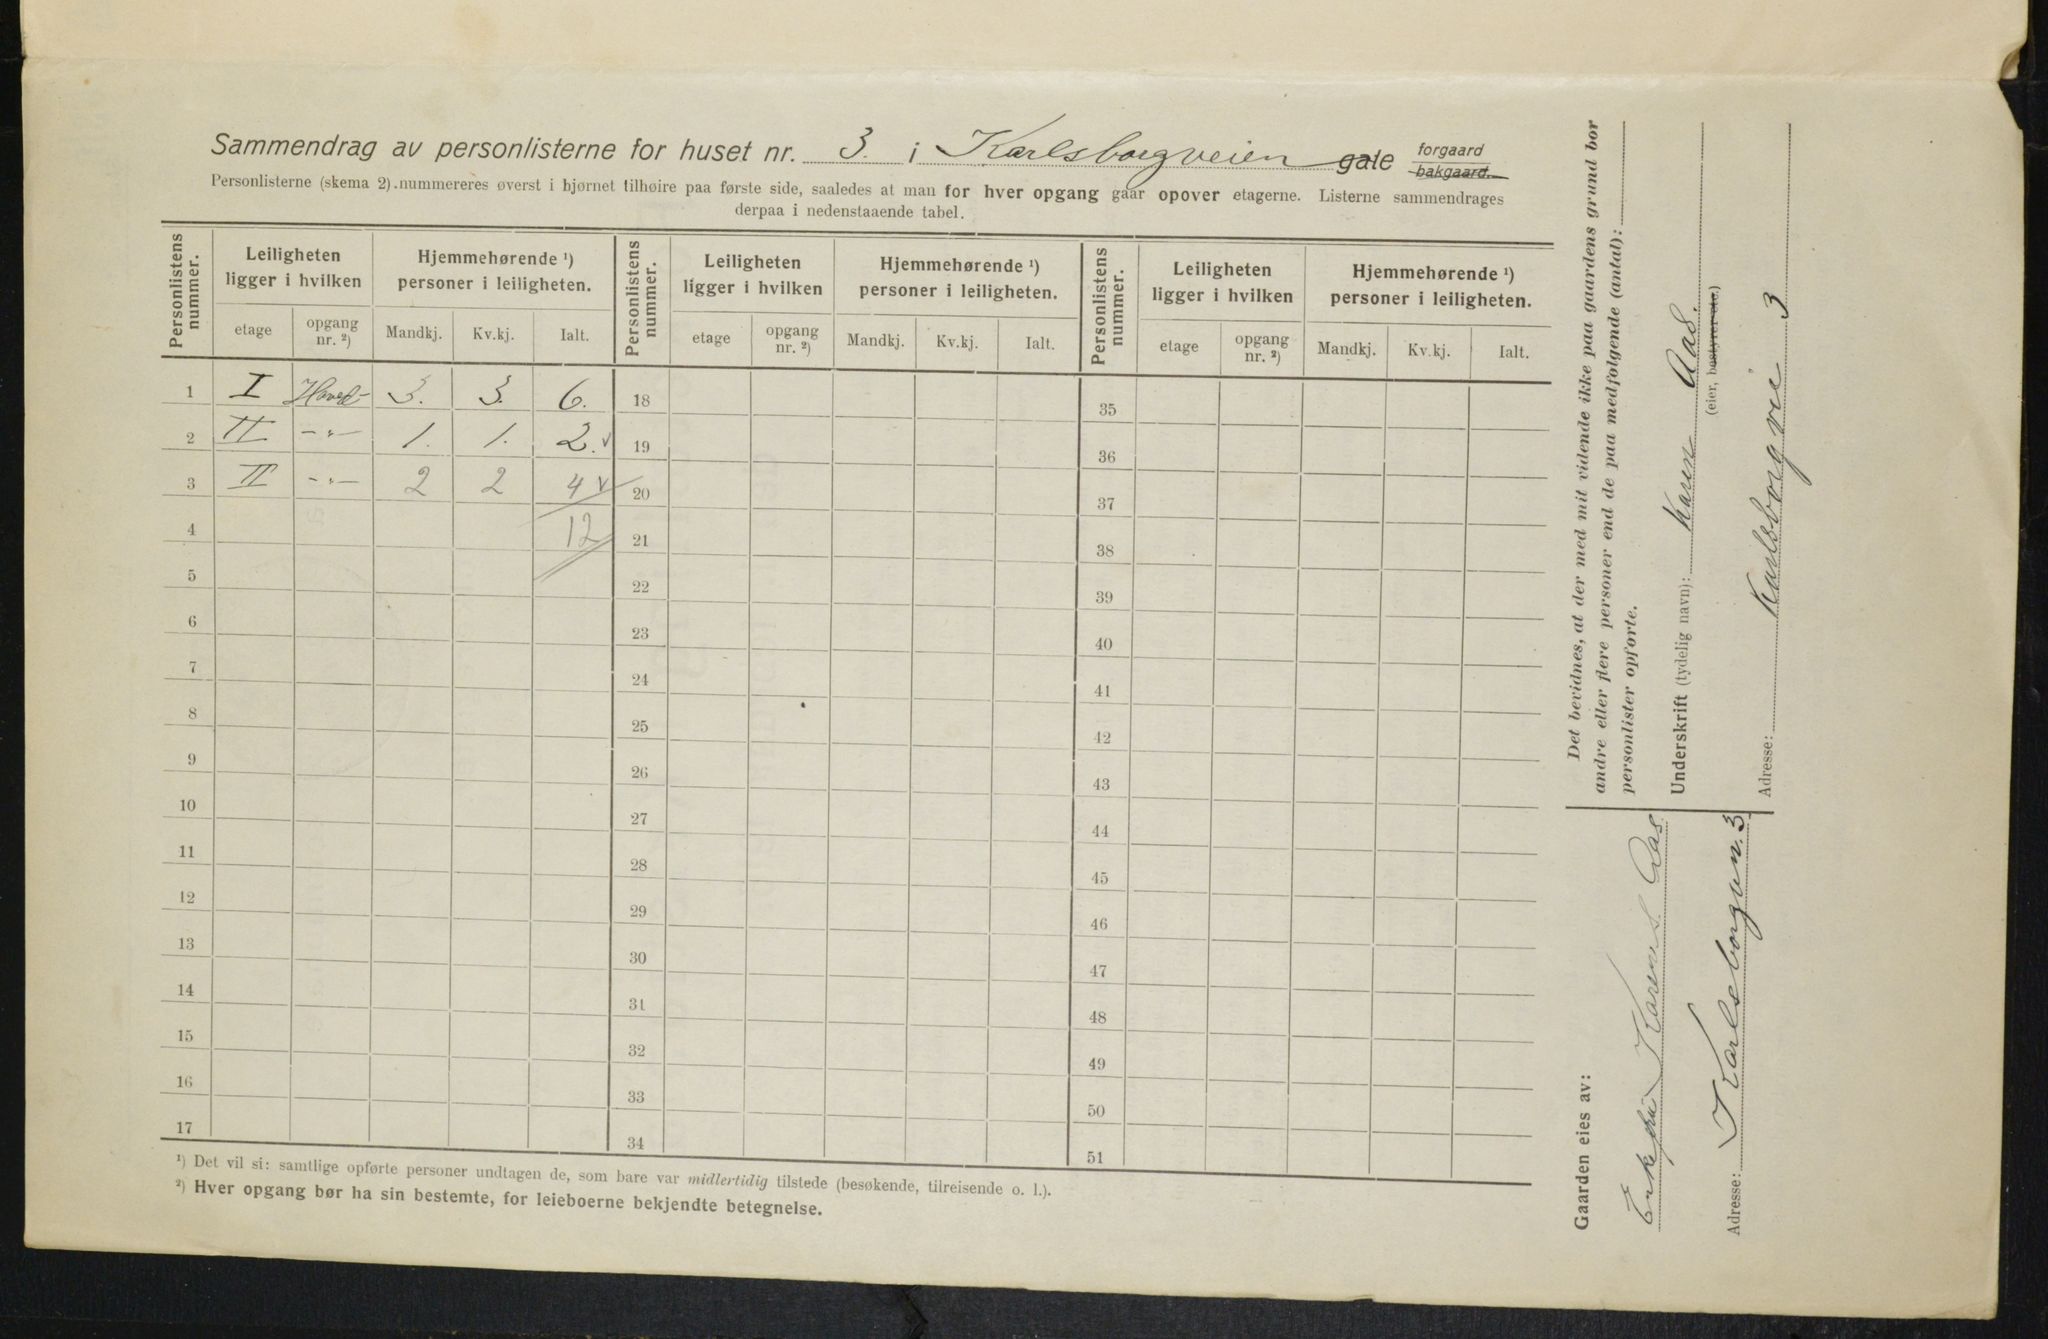 Sammendrag av personlisterne for huset nr. 3. i Karlsborgveien gate forgaard bakgaard.
Personlisterne (skema 2) nummereres øverst i hjørnet tilhøire paa første side, saaledes at man for hver opgang gaar opover etagerne. Listerne sammendrages
derpaa i nedenstaaende tabel.
Personlistens nummer. Leiligheten ligger i hvilken Hjemmehørende ¹) personer i leiligheten. Personlistens nummer. Leiligheten ligger i hvilken Hjemmehørende ¹) personer i leiligheten. Personlistens nummer. Leiligheten ligger i hvilken Hjemmehørende ¹) personer i leiligheten.
etage opgang nr. ²) Mandkj. Kv.kj. Ialt. etage opgang nr. ²) Mandkj. Kv.kj. Ialt. etage opgang nr. ²) Mandkj. Kv.kj. Ialt.
1 I Hoved- 3. 3. 6. 18 35
2 II -"- 1. 1. 2. v 19 36
3 II -"- 2 2 4 v 20 37
4 12 21 38
5 22 39
6 23 40
7 24 41
8 25 42
9 26 43
10 27 44
11 28 45
12 29 46
13 30 47
14 31 48
15 32 49
16 33 50
17 34 51
¹) Det vil si: samtlige opførte personer undtagen de, som bare var midlertidig tilstede (besøkende, tilreisende o. l.).
²) Hver opgang bør ha sin bestemte, for leieboerne bekjendte betegnelse.
Det bevidnes, at der med mit vidende ikke paa gaardens grund bor
andre eller flere personer end de paa medfølgende (antal):
personlister opførte.
Underskrift (tydelig navn): Karen Aas.
(eier, bestyrer etc.)
Adresse: Karlsborgvei 3
Gaarden eies av:
Enkefru Karen S. Aas
Adresse: Karlsborgvn. 3